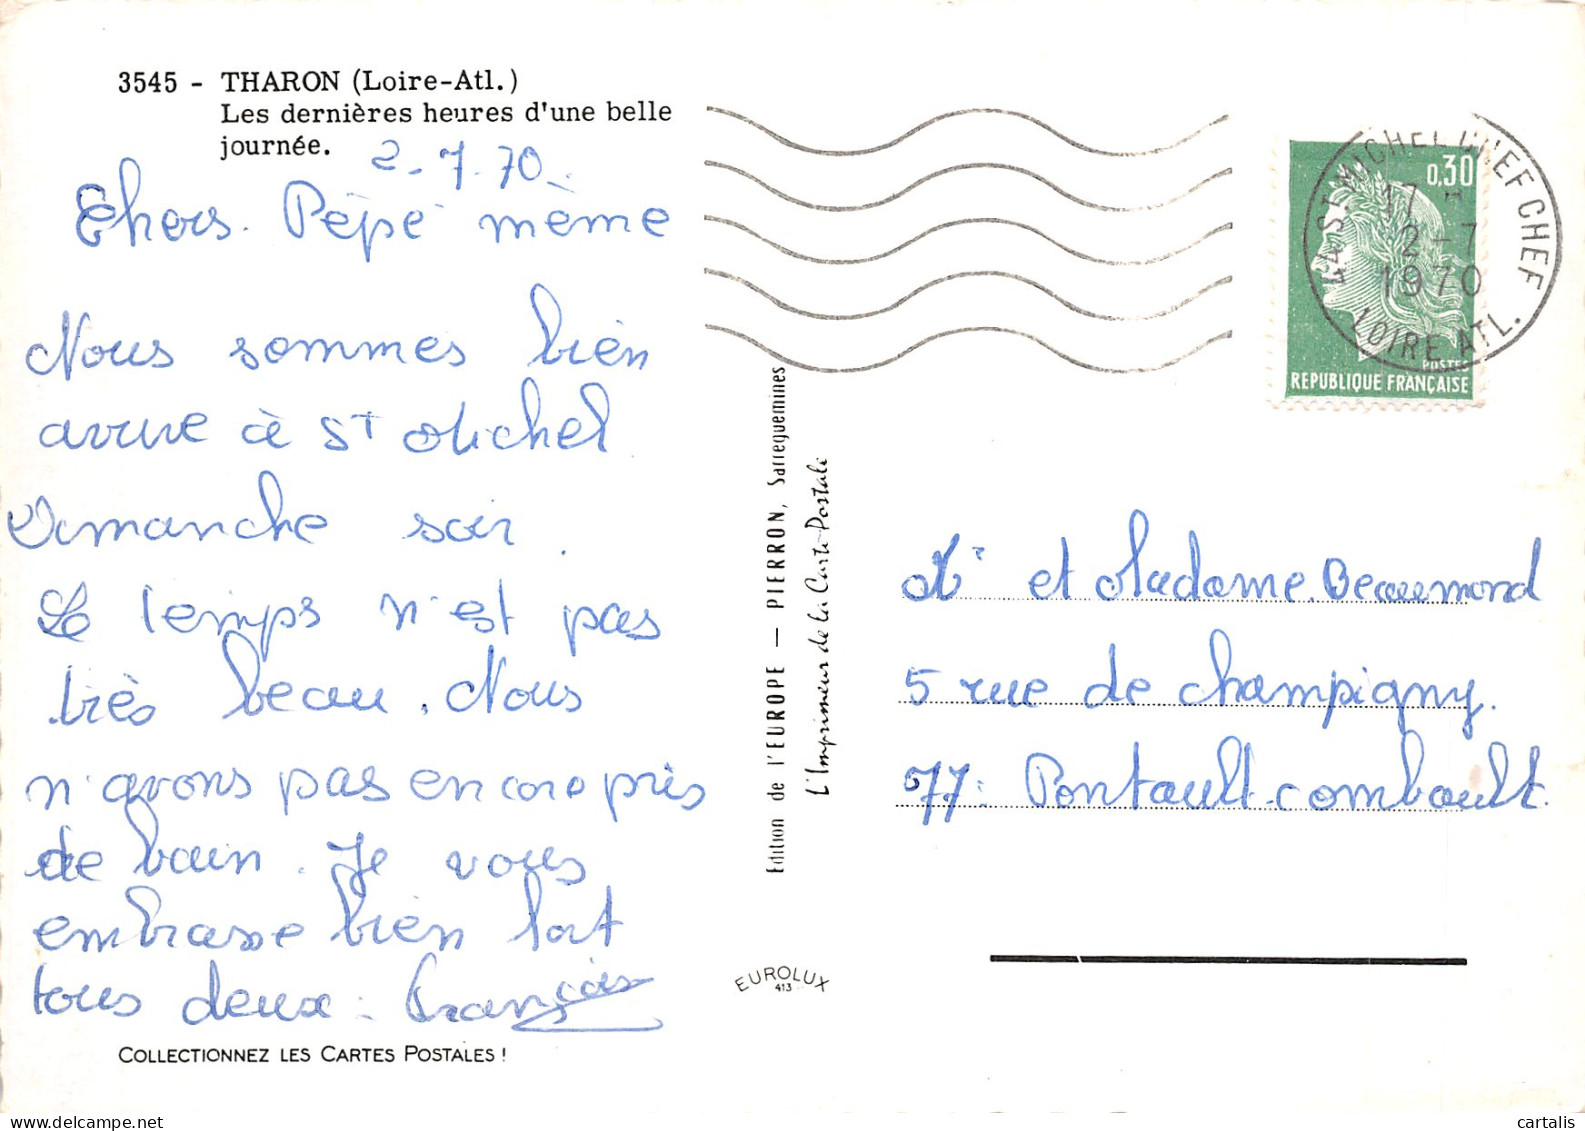 3545 - THARON (Loire-Atl.)
Les dernières heures d'une belle
journée.
2-7-70
Chers Pépé mémé
Nous sommes bien
arrive à St Michel
Dimanche soir.
Le temps n'est pas
très beau. Nous
n'avons pas encore pris
de bain. Je vous
embrasse bien fort
tous deux. François
COLLECTIONNEZ LES CARTES POSTALES !
Edition de l'EUROPE — PIERRON, Sarreguemines
L'Imprimeur de la Carte Postale
EUROLUX
413
0,30
POSTES
REPUBLIQUE FRANÇAISE
44 ST MICHEL CHEF CHEF
17 H
2-7
1970
LOIRE ATL.
Mr et Madame Beaumond
5 rue de champigny.
77: Pontault-combault.
cartalis